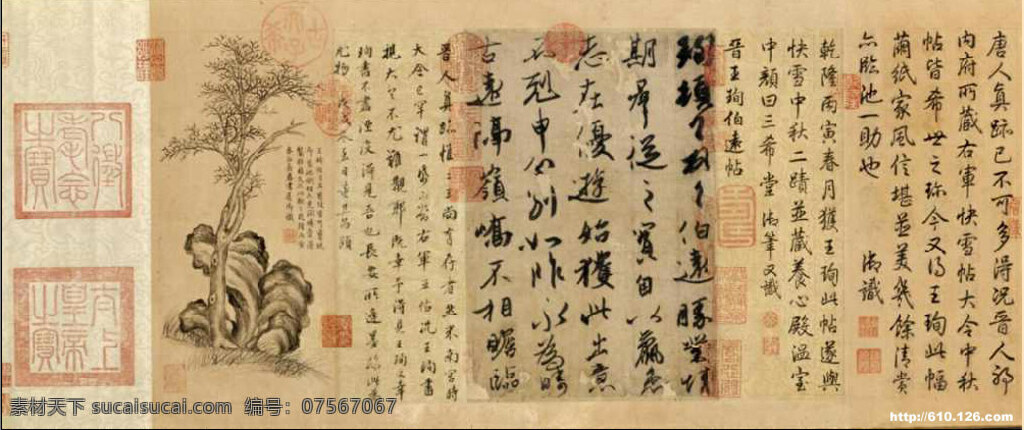 唐人真跡已不可多得況晉人耶
內府所藏右軍快雪帖大令中秋
帖皆希世之珍今又得王珣此幅
繭紙家風信堪並美幾餘清賞
亦臨池一助也 御識
乾隆丙寅春月獲王珣此帖遂與
快雪中秋二蹟並藏養心殿溫室
中顏曰三希堂御筆又識
晉王珣伯遠帖
珣頓首頓首伯遠勝業情
期群從之寶自以羸患
志在優遊始獲此出意
不剋申分別如昨永為疇
古遠隔嶺嶠不相瞻臨
晉人真跡惟二王尚有存者然米南宮時
大令已罕謂一紙可當右軍五帖況王珣書
視大令不尤難覯耶既幸予得見王珣又幸
珣書不盡湮沒得見吾也長安所逢墨跡此為
尤物 戊戌冬至日董其昌題
八徵耄念之寶
太上皇帝之寶
素材天下 sucaisucai.com 编号：07567067
http://610.126.com/